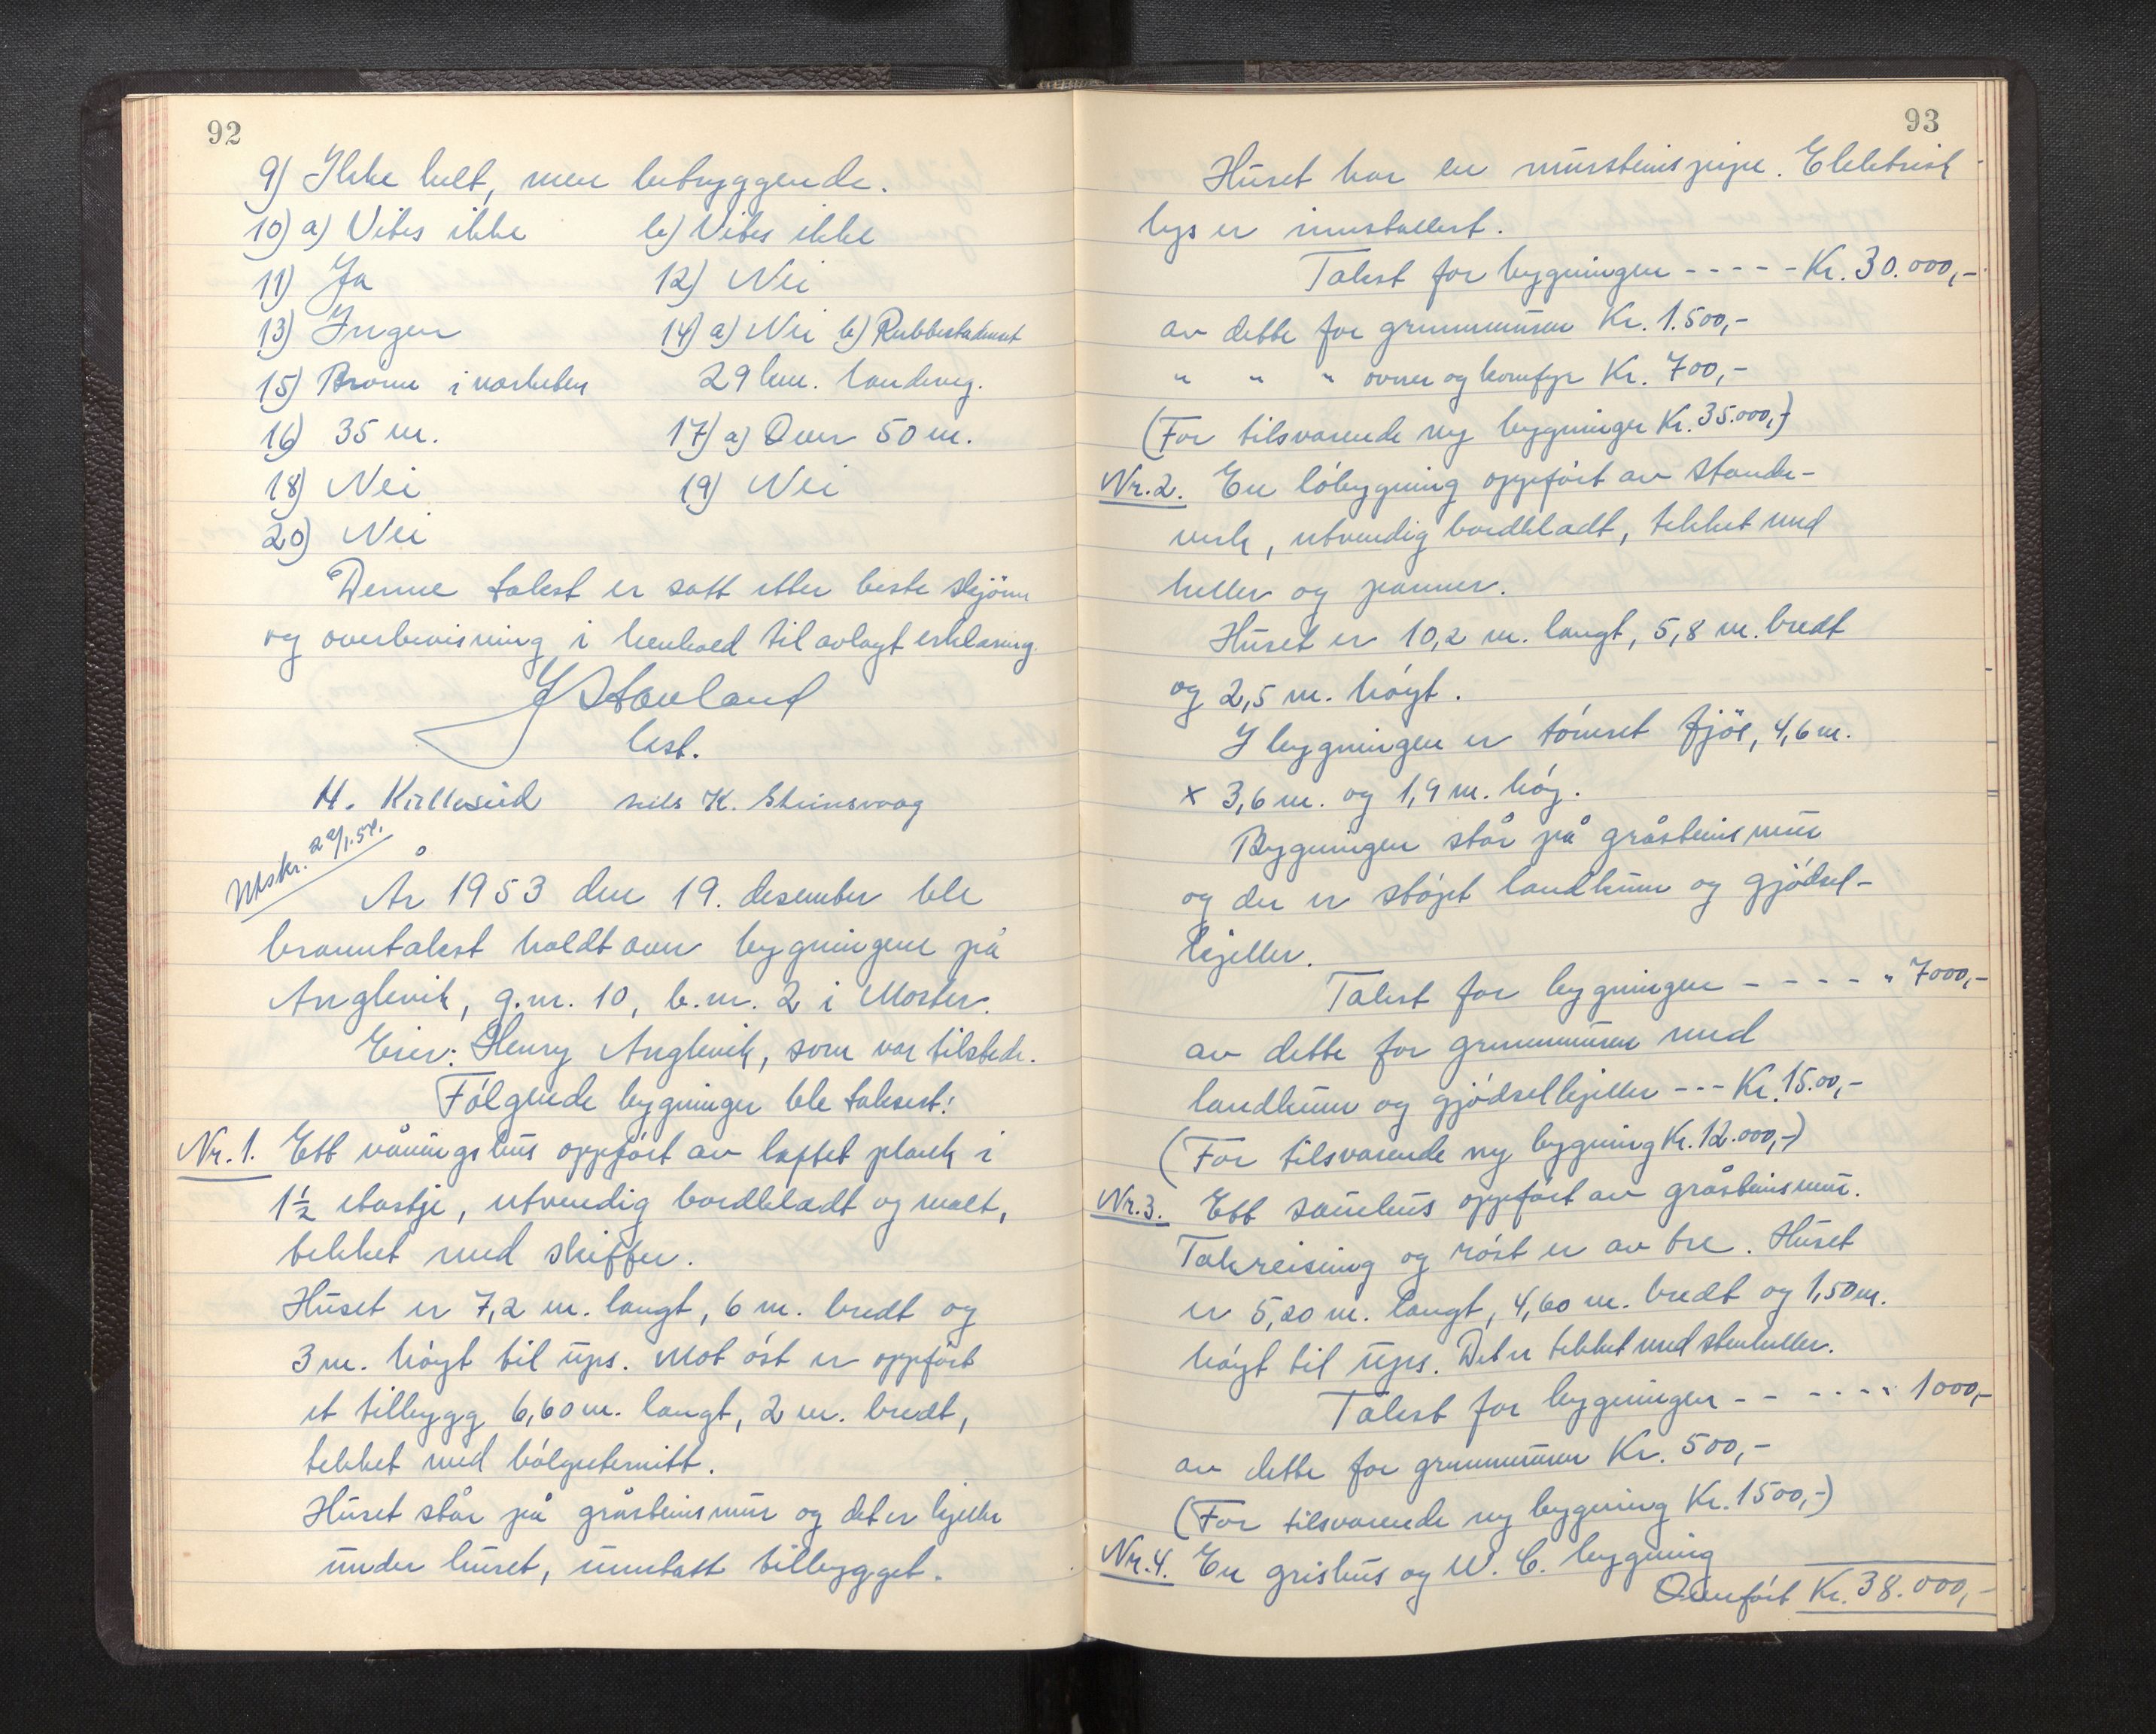 92
9) Ikke helt, men betryggende.
10) a) Vites ikke b) Vites ikke
11) Ja 12) Nei
13) Ingen 14) a) Nei b) Rubbestadneset
15) Brønn i nærheten 29 km. landeveg.
16) 35 m. 17) a) Over 50 m.
18) Nei 19) Nei
20) Nei
Denne takst er satt etter beste skjönn
og overbevisning i henhold til avlagt erklæring.
J Stavland
lest.
H. Kallesund Nils K. Steinsvaag
Utskr. 29/1.54.
År 1953 den 19. desember ble
branntakst holdt over bygningene på
Anglevik, g.nr. 10, b.nr. 2 i Moster.
Eier: Henry Anglevik, som var tilstede.
Fölgende bygninger ble taksert:
Nr. 1. Ett våningshus oppfört av laftet plank i
1½ etasje, utvendig bordkledt og malt,
tekket med skiffer.
Huset er 7,2 m. langt, 6 m. bredt og
3 m. höyt til ups. Mot öst er oppfört
et tilbygg 6,60 m. langt, 2 m. bredt,
tekket med bölgeeternitt.
Huset står på gråsteinsmur og det er kjeller
under huset, unntatt tilbygget.
93
Huset har en mursteinspipe. Elektrisk
lys er innstallert.
Takst for bygningen ----- Kr. 30.000,-
av dette for grunnmuren Kr. 1.500,-
" " " ovner og komfyr Kr. 700,-
(For tilsvarende ny bygninger Kr. 35.000,-)
Nr. 2. En löbygning oppfört av stender-
verk, utvendig bordkladt, tekket med
heller og panner.
Huset er 10,2 m. langt, 5,8 m. bredt
og 2,5 m. höyt.
I bygningen er tömret fjös, 4,6 m.
x 3,6 m. og 1,9 m. höy.
Bygningen står på gråsteinsmur
og der er stöpt landkum og gjödsel-
kjeller.
Takst for bygningen ----- " 7000,-
av dette for grunnmuren med
landkum og gjödselkjeller --- Kr. 15.00,-
(For tilsvarende ny bygning Kr. 12.000,-)
Nr. 3. Ett sauehus oppfört av gråsteinsmur.
Takreising og röst er av tre. Huset
er 5,20 m. langt, 4,60 m. bredt og 1,50 m.
höyt til ups. Det er tekket med steinheller.
Takst for bygningen ------ " 1000,-
av dette for grunnmuren Kr. 500,-
(For tilsvarende ny bygning Kr. 1500,-)
Nr. 4. En grishus og W. C. bygning
Överfört Kr. 38.000,-